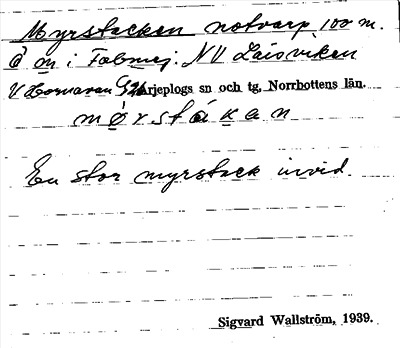 Myrstacken notvarp, 100 m.
Ö m i Falmej. NV Laisviken
V Hornavan Arjeplogs sn och tg, Norrbottens län.
mørstákan
En stor myrstack invid.
Sigvard Wallström, 1939.